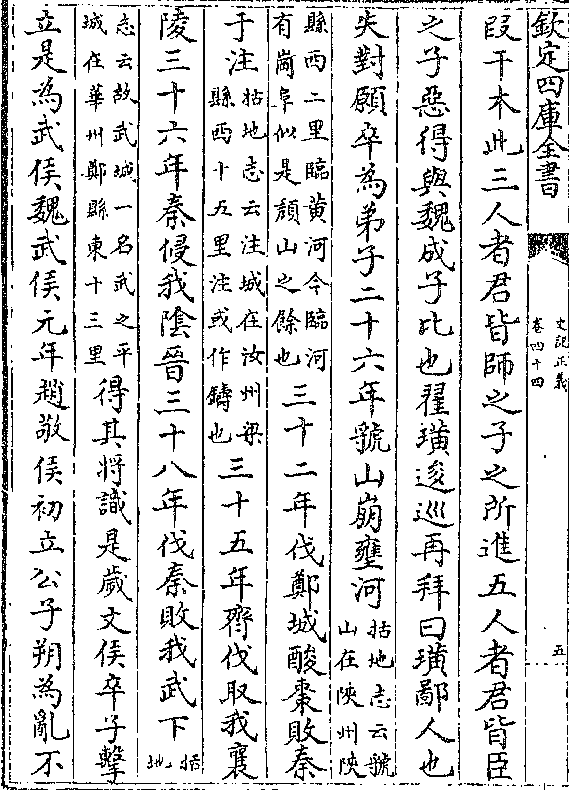 欽定四庫全書
史記正義
卷四十四
五
段干木此三人者君皆師之子之所進五人者君皆臣
之子惡得與魏成子比也翟璜逡巡再拜曰璜鄙人也
失對願卒為弟子二十六年虢山崩壅河括地志云虢山在陝州陝
縣西二里臨黃河今臨河有崗阜似是頽山之餘也三十二年伐鄭城酸棗敗秦
于注括地志云注城在汝州梁縣西十五里注或作鑄也三十五年齊伐取我襄
陵三十六年秦侵我陰晉三十八年伐秦敗我武下括地
志云故武城一名武之平城在華州鄭縣東十三里得其將識是歲文侯卒子擊
立是為武侯魏武侯元年趙敬侯初立公子朔為亂不